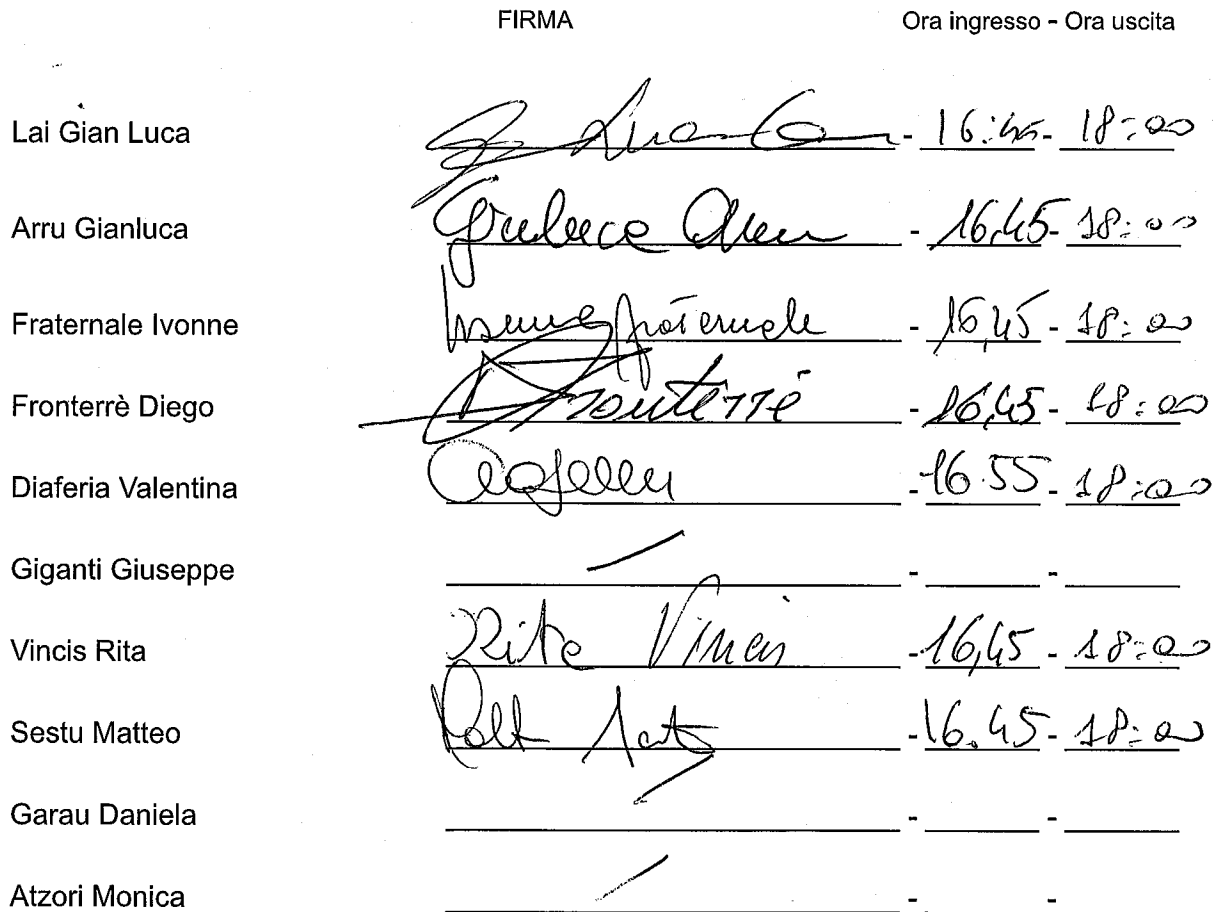 FIRMA Ora ingresso - Ora uscita
Lai Gian Luca - 16:45 - 18:00
Arru Gianluca Gianluca Arru - 16,45 - 18:00
Fraternale Ivonne Ivonne Fraternale - 16,45 - 18:00
Fronterrè Diego Fronterrè - 16,45 - 18:00
Diaferia Valentina - 16.55 - 18:00
Giganti Giuseppe - -
Vincis Rita Rita Vincis - 16,45 - 18:00
Sestu Matteo - 16.45 - 18:00
Garau Daniela - -
Atzori Monica - -